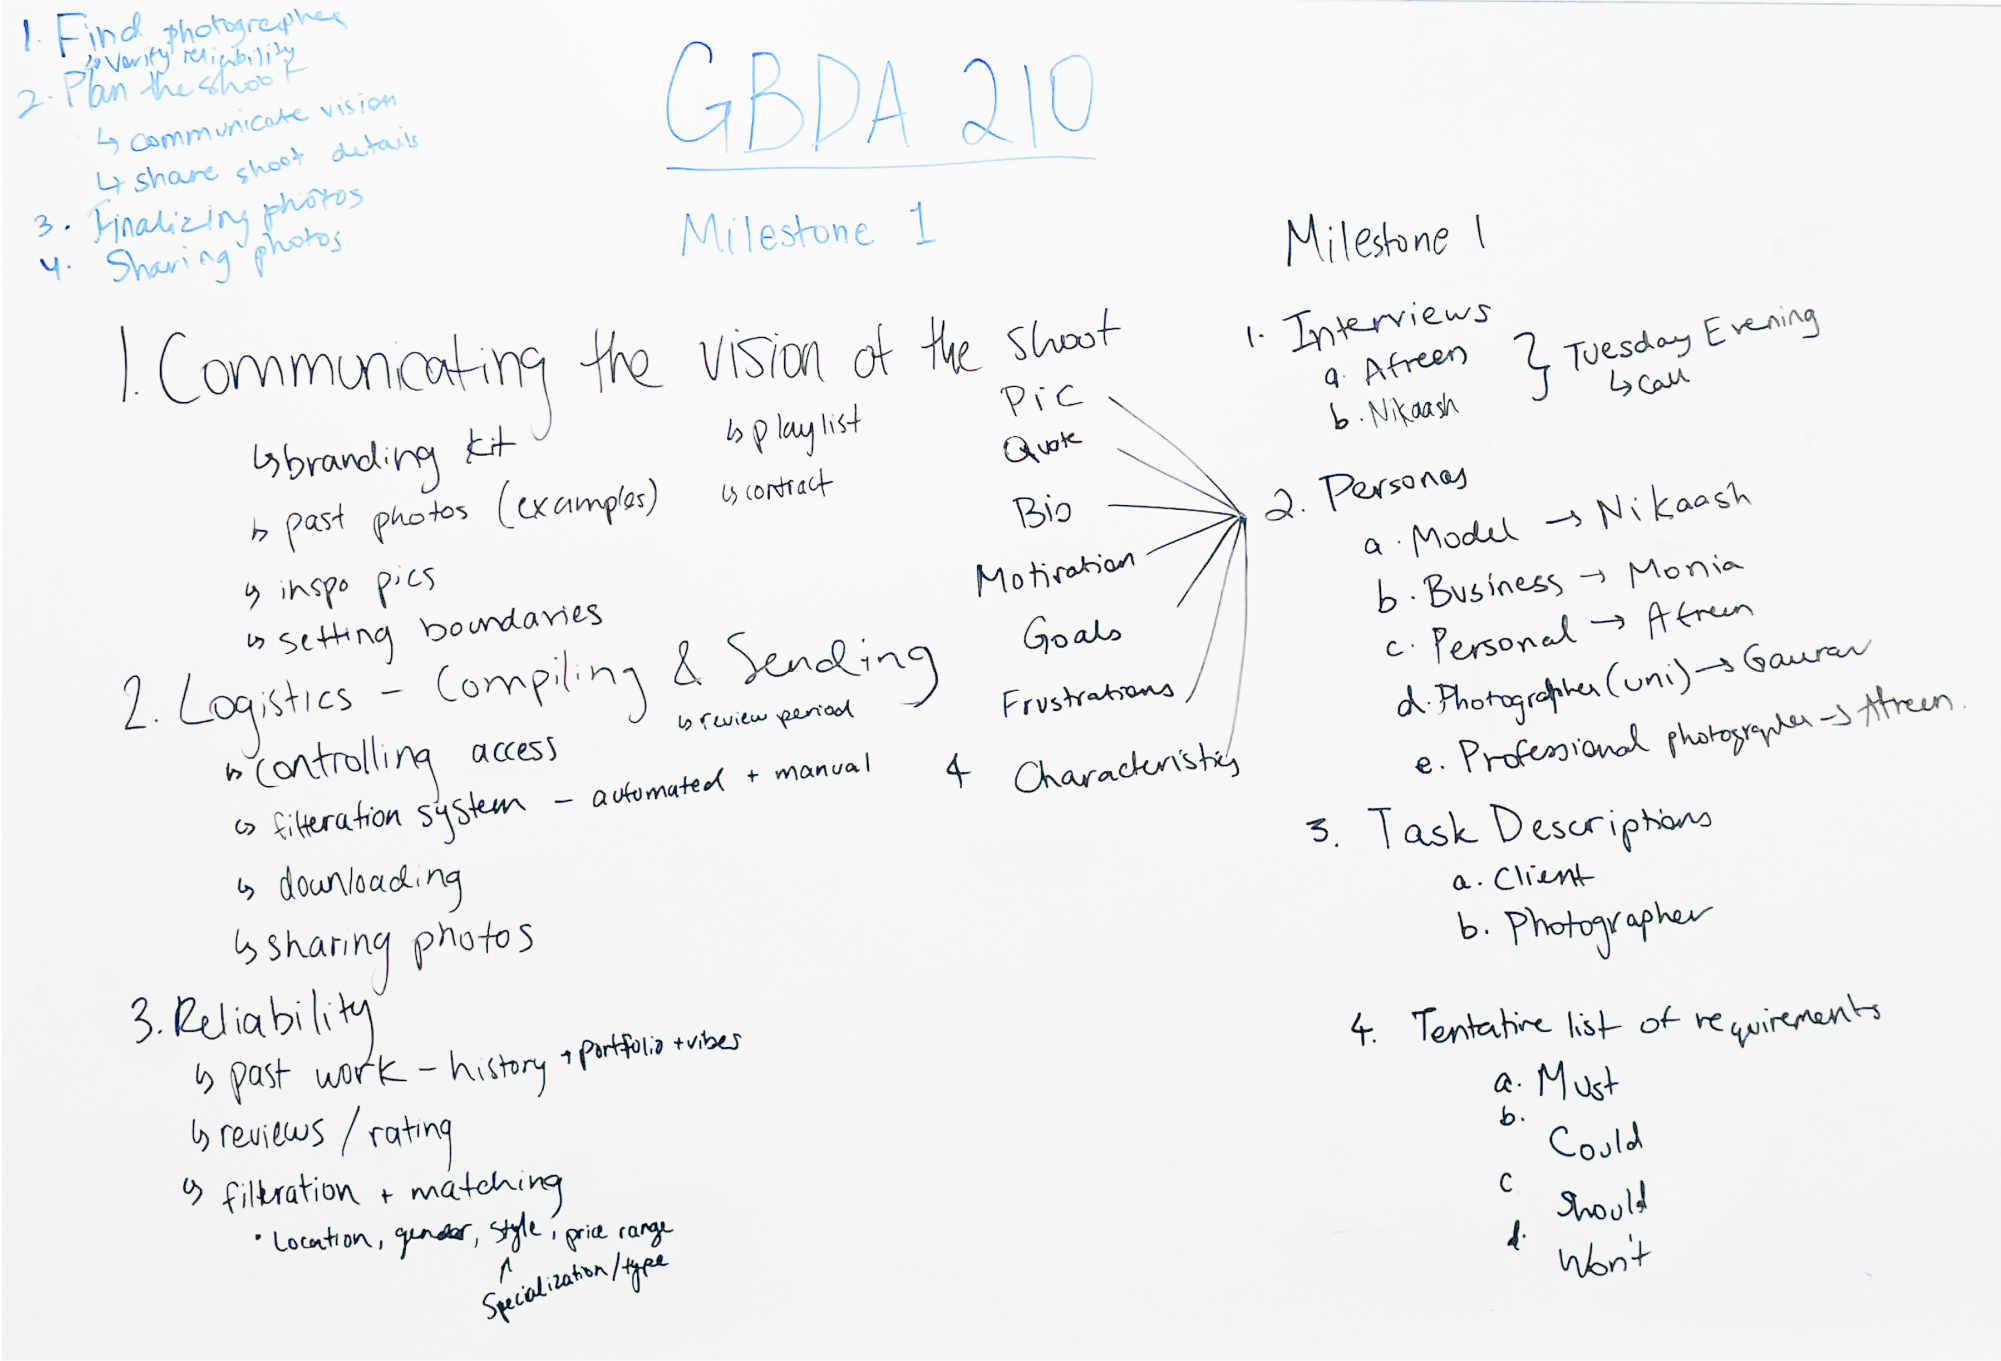 1. Find photographer
↳ Verify reliability
2. Plan the shoot
↳ communicate vision
↳ share shoot details
3. Finalizing photos
4. Sharing photos
GBDA 210
Milestone 1
1. Communicating the vision of the shoot
↳ branding kit
↳ past photos (examples)
↳ inspo pics
↳ setting boundaries
↳ playlist
↳ contract
2. Logistics - Compiling & Sending
↳ review period
↳ controlling access
↳ filteration system - automated + manual
↳ downloading
↳ sharing photos
3. Reliability
↳ past work - history + portfolio + vibes
↳ reviews / rating
↳ filteration + matching
• Location, gender, style, price range
↑
Specialization / type
Pic
Quote
Bio
Motivation
Goals
Frustrations
4 Characteristics
Milestone 1
1. Interviews
a. Afreen
b. Nikaash
} Tuesday Evening
↳ Call
2. Personas
a. Model → Nikaash
b. Business → Monia
c. Personal → Afreen
d. Photographer (uni) → Gaurav
e. Professional photographer → Afreen.
3. Task Descriptions
a. Client
b. Photographer
4. Tentative list of requirements
a. Must
b. Could
c Should
d. Won't